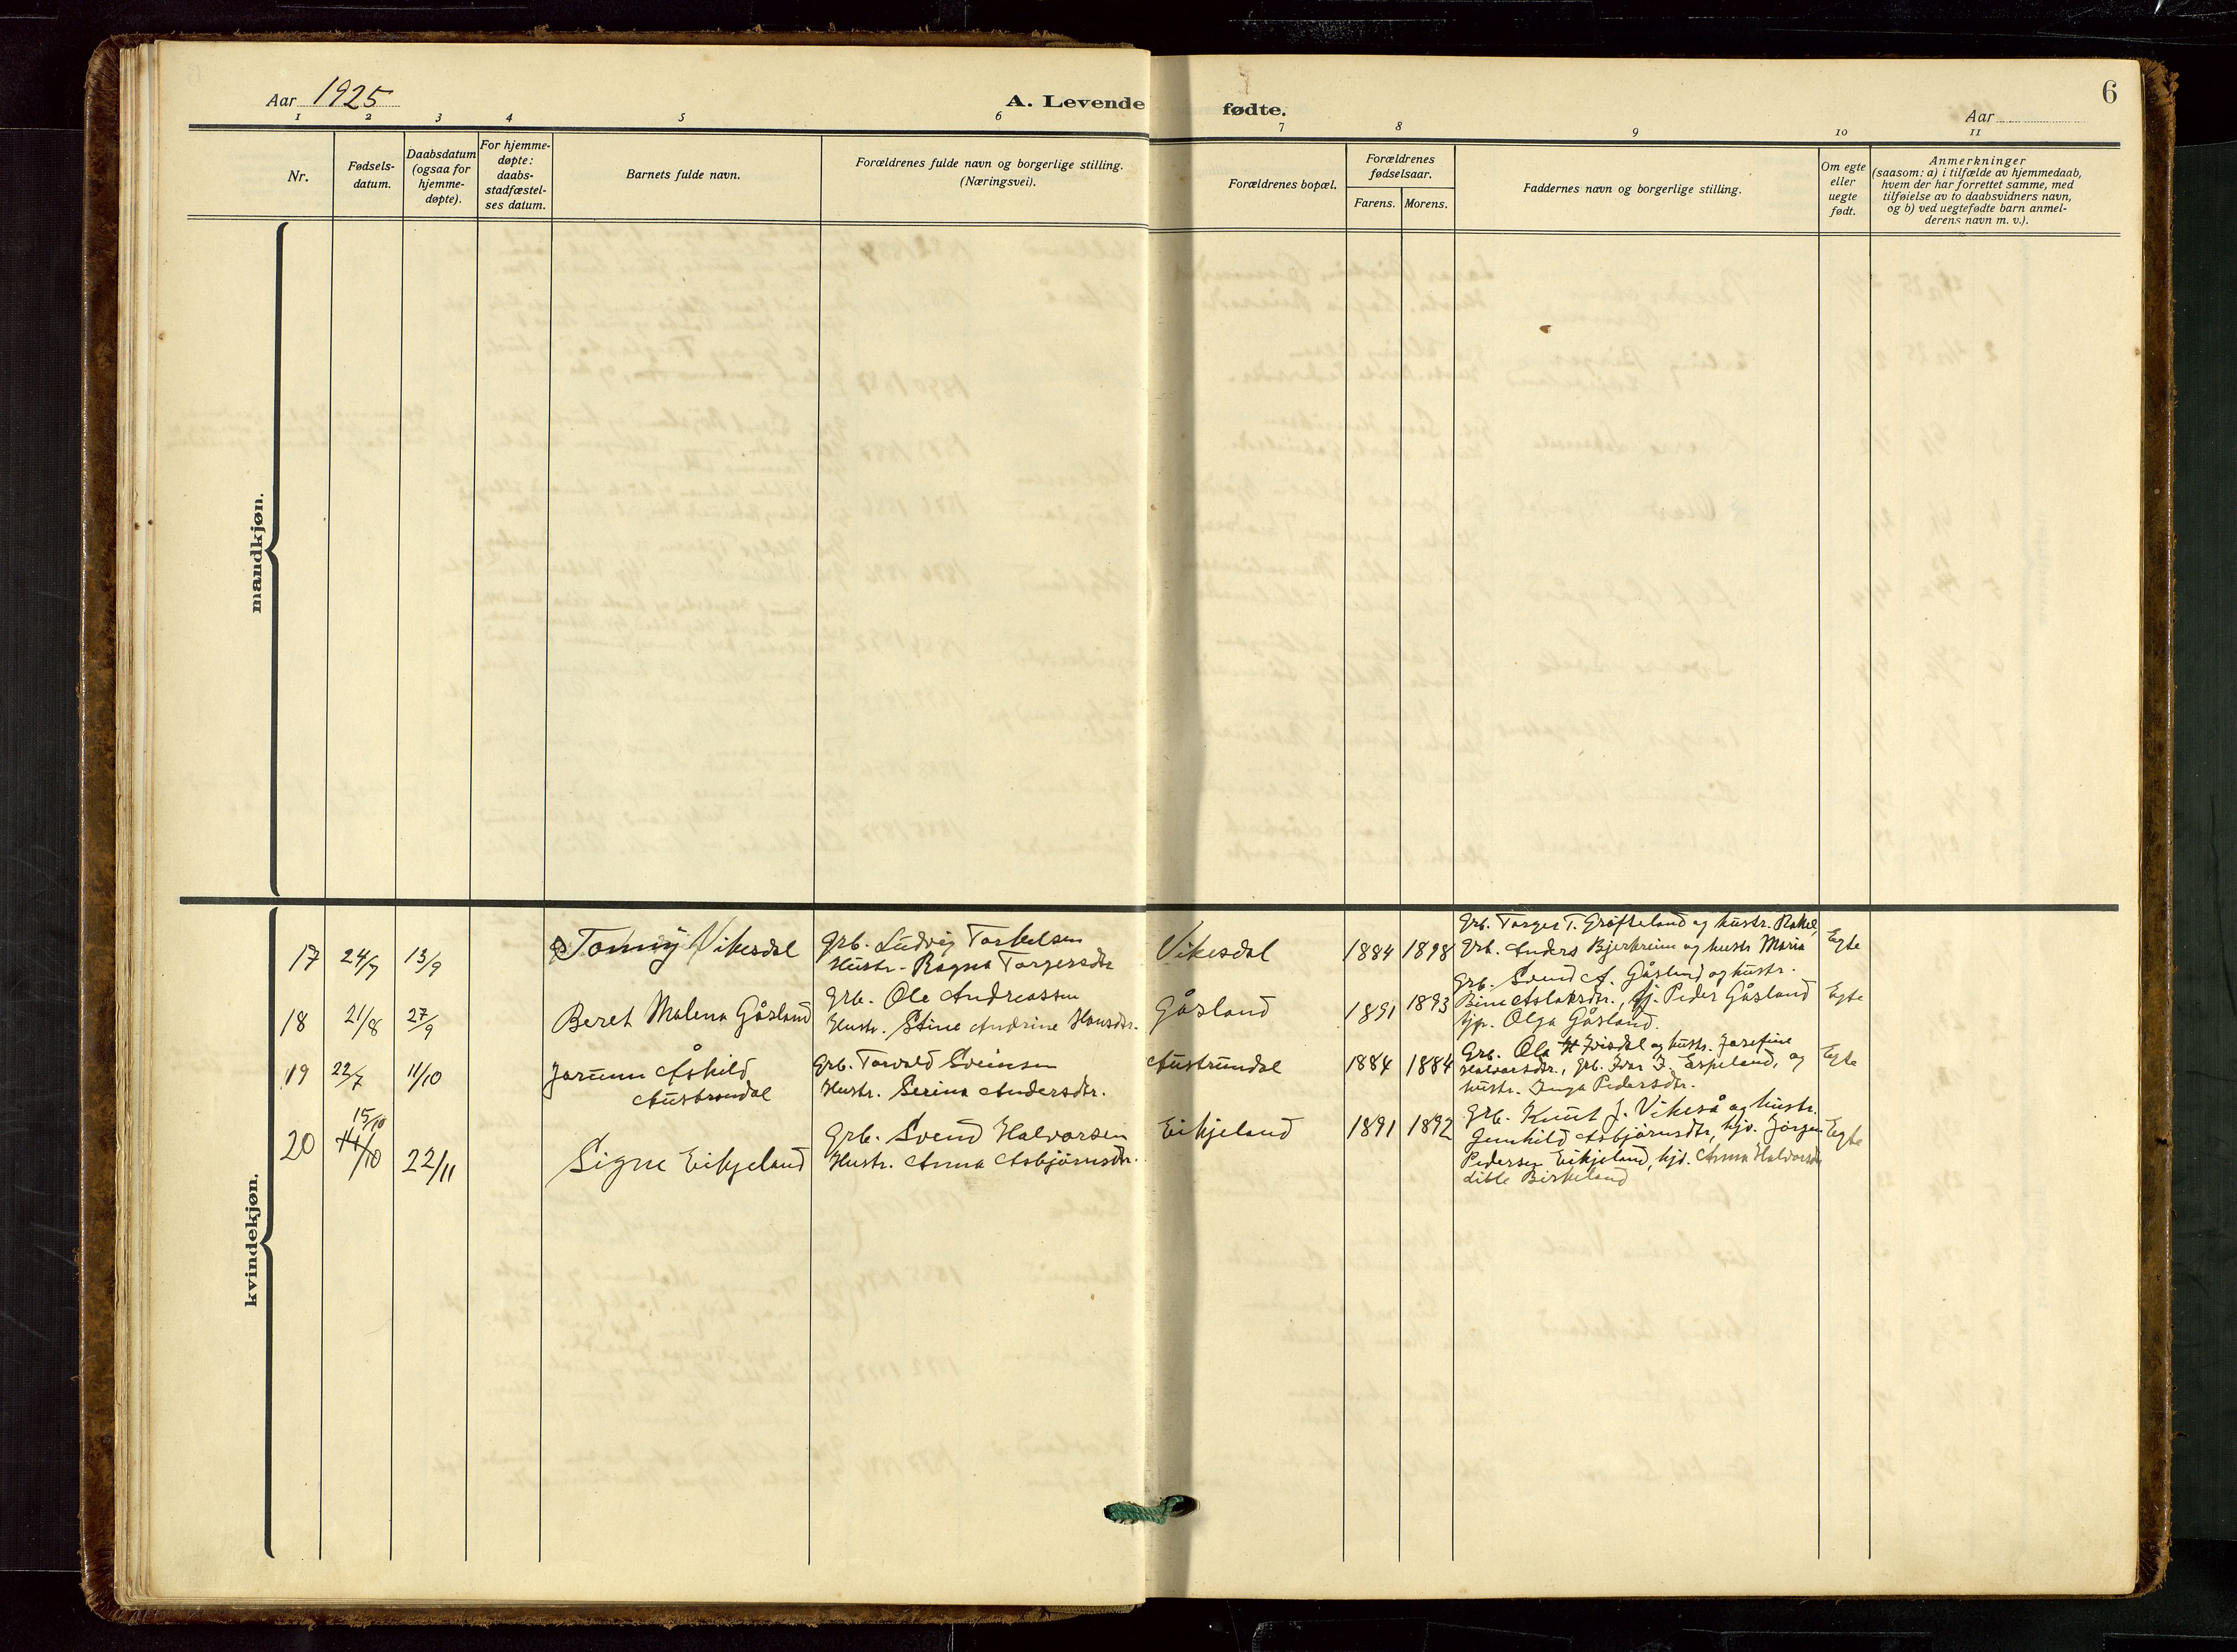 Aar 1925
A. Levende fødte.
6
Aar
1 2 3 4 5 6 7 8 9 10 11
Nr.
Fødsels-
datum.
Daabsdatum
(ogsaa for
hjemme-
døpte).
For hjemme-
døpte:
daabs-
stadfæstel-
ses datum.
Barnets fulde navn.
Forældrenes fulde navn og borgerlige stilling.
(Næringsvei).
Forældrenes bopæl.
Forældrenes
fødselsaar.
Farens. Morens.
Faddernes navn og borgerlige stilling.
Om egte
eller
uegte
født.
Anmerkninger
(saasom: a) i tilfælde av hjemmedaab,
hvem der har forrettet samme, med
tilføielse av to daabsvidners navn,
og b) ved uegtefødte barn anmel-
derens navn m. v.).
mandkjøn.
kvindekjøn.
17 24/7 13/9
Tonny Vikesdal
Grb. Ludvig Torkelsen
Hustr. Ragna Torgersdtr
Vikesdal
1884 1898
Grb. Torger T. Grøfteland og hustr. Rakel,
Grb. Anders Bjerkreim og hustr Maria
Egte
18 21/8 27/9
Beret Malena Gåsland
Grb. Ole Andreassen
Hustr. Stine Andrine Hansdtr.
Gåsland
1891 1893
Grb. Svend A. Gåsland og hustr.
Bine Aslaksdtr., Peder Gåsland
Olga Gåsland.
Egte
19 22/7 11/10
Jorunn Åshild
Austrumdal
Grb. Torvald Sveinsen
Hustr. Serina Andersdtr.
Austrumdal
1884 1884
Grb. Ola H Ivisdal og hustr. Josefine
Halvorsdtr., Grb. Ivar I. Espeland, og
hustr. Inga Pedersdtr.
Egte
15/10
20 14/10 22/11
Signe Eikjeland
Grb. Svend Halvorsen
Hustr. Anna Asbjörnsdtr.
Eikjeland
1891 1892
Grb. Knut J. Vikeså og hustr.
Gunhild Asbjörnsdtr, Jörgen
Pedersen Eikjeland, Anna Halvorsdtr
Birkeland
Egte